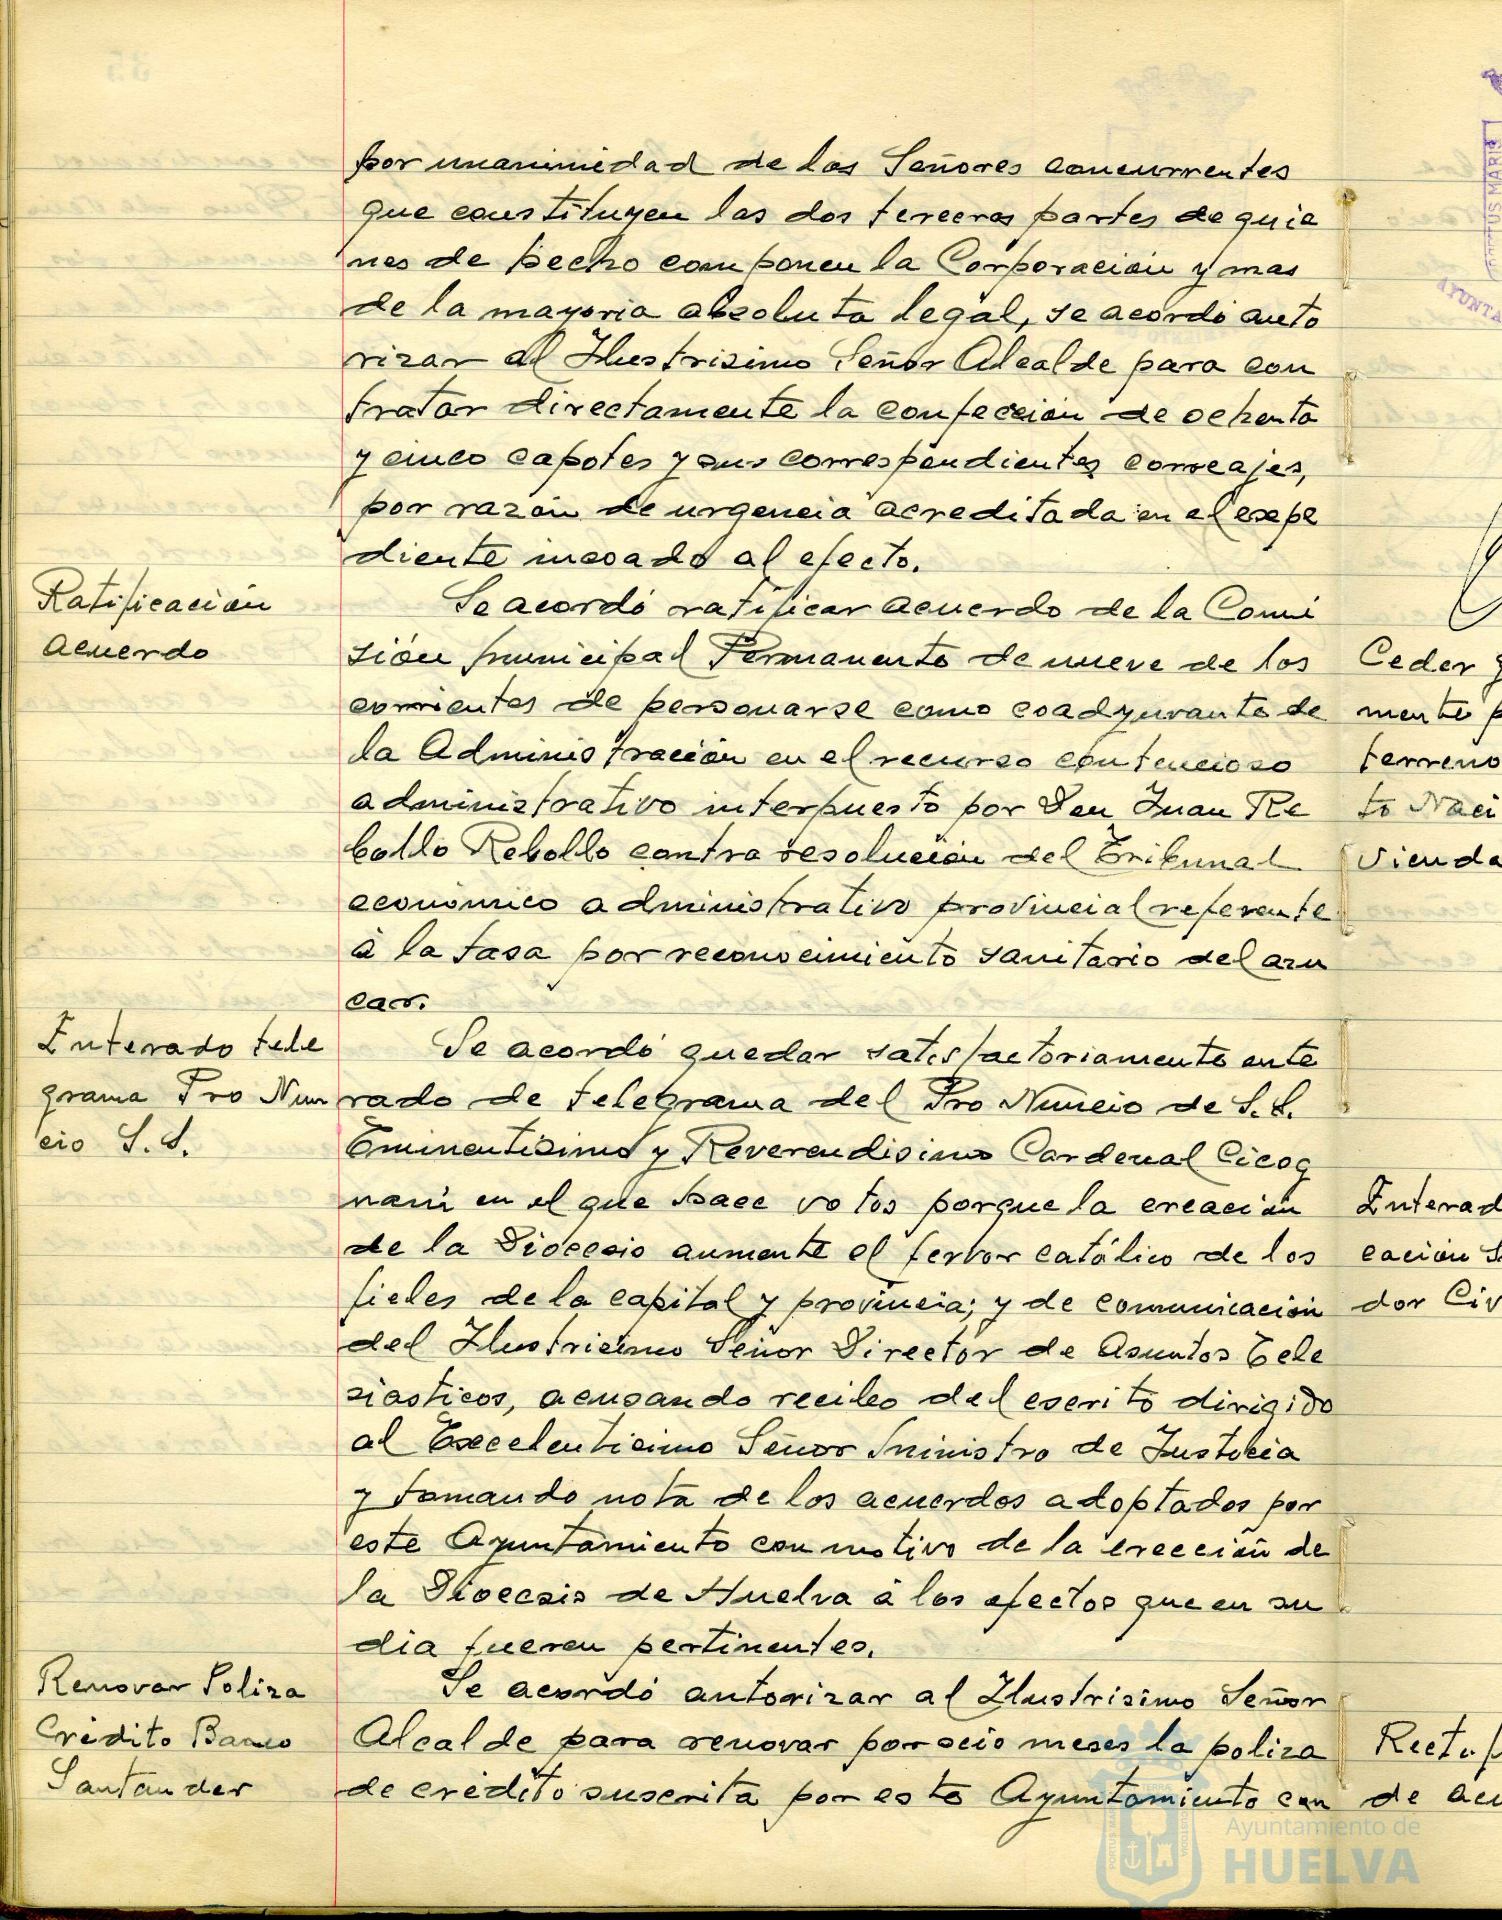 por unanimidad de los Señores concurrentes
que constituyen las dos terceras partes de quie
nes de hecho componen la Corporación y mas
de la mayoria absoluta legal, se acordó auto
rizar al Ilustrisimo Señor Alcalde para con
tratar directamente la confección de ochenta
y cinco capotes y sus correspondientes correajes,
por razón de urgencia acreditada en el expe
diente incoado al efecto.
Ratificación
acuerdo
Se acordó ratificar acuerdo de la Comi
sión municipal Permanente de nueve de los
corrientes de personarse como coadyuvante de
la Administración en el recurso contencioso
administrativo interpuesto por Don Juan Re
bollo Rebollo contra resolución del Tribunal
económico administrativo provincial referente
á la tasa por reconocimiento sanitario del azu
car.
Enterado tele
grama Pro Nun
cio S.S.
Se acordó quedar satisfactoriamente ente
rado de telegrama del Pro Nuncio de S.S.
Eminentisimo y Reverendisimo Cardenal Cicog
nani en el que hace votos porque la creación
de la Diocesis aumente el fervor católico de los
fieles de la capital y provincia; y de comunicación
del Ilustrisimo Señor Director de Asuntos Ecle
siasticos, acusando recibo del escrito dirigido
al Excelentisimo Señor Ministro de Justicia
y tomando nota de los acuerdos adoptados por
este Ayuntamiento con motivo de la erección de
la Diocesis de Huelva á los efectos que en su
dia fueren pertinentes.
Renovar Poliza
Crédito Banco
Santander
Se acordó autorizar al Ilustrisimo Señor
Alcalde para renovar por seis meses la poliza
de crédito suscrita por este Ayuntamiento con
Ceder
mente p
terreno
to Naci
vienda
Enterad
cación S
dor Civ
Rectif
de acu
Ayuntamiento de
HUELVA